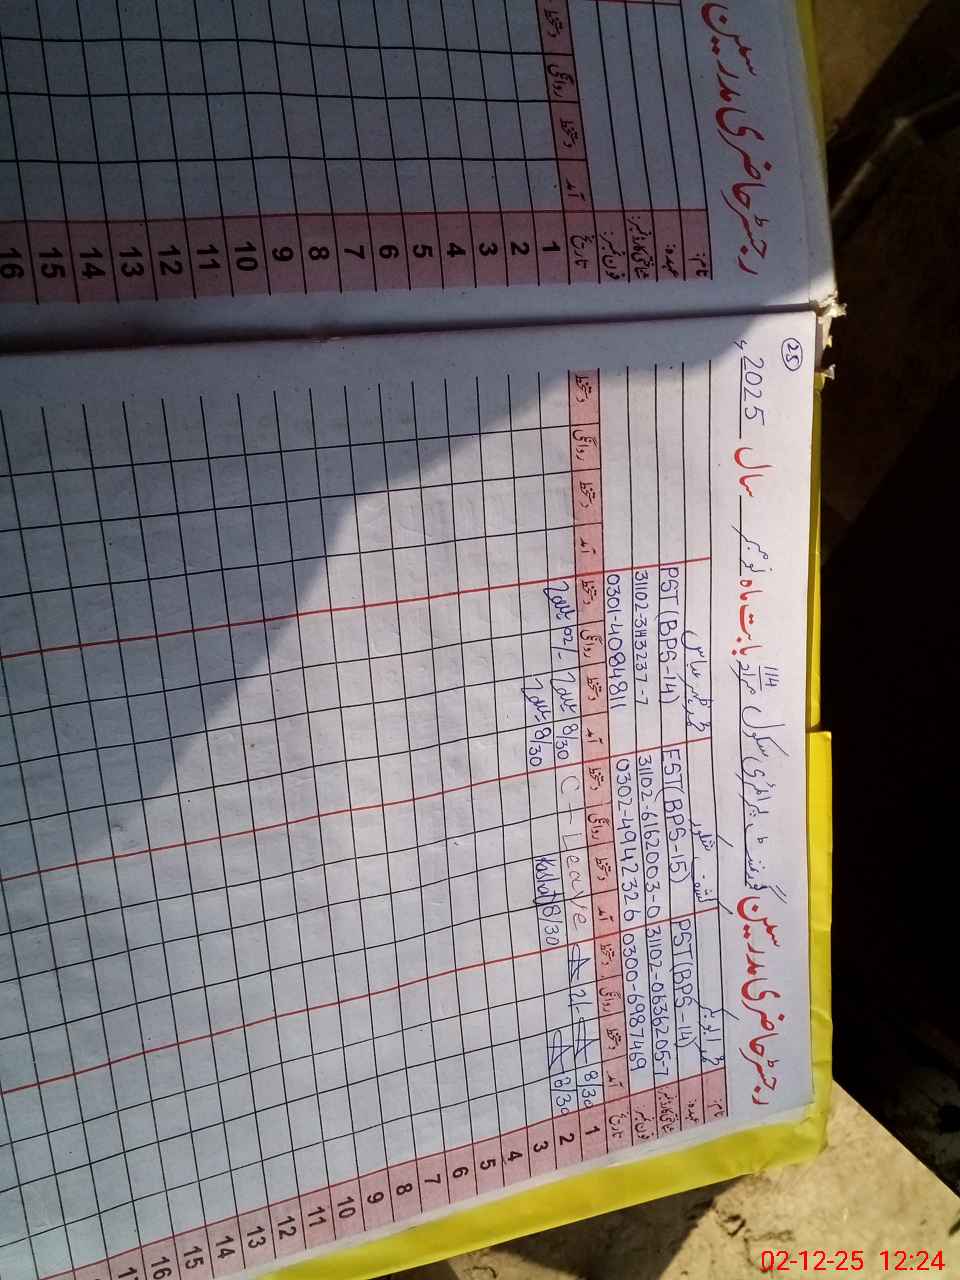 رجسٹر حاضری مدرسین
نام:
عہدہ:
شناختی کارڈ نمبر:
فون نمبر:
تاریخ آمد دستخط روانگی دستخط
1
2
3
4
5
6
7
8
9
10
11
12
13
14
15
16
25
رجسٹر حاضری مدرسین گورنمنٹ پرائمری سکول مراد 114 بابت ماہ دسمبر سال 2025ء
نام: محمد ابوبکر کاشف شکور محمد ظہیر عباس
عہدہ: PST(BPS-14) EST(BPS-15) PST(BPS-14)
شناختی کارڈ نمبر: 31102-0636205-7 31102-6162003-0 31102-3143237-7
فون نمبر: 0300-6987469 0302-4942326 0301-4084811
تاریخ آمد دستخط روانگی دستخط آمد دستخط روانگی دستخط آمد دستخط روانگی دستخط آمد دستخط روانگی دستخط
1 8/30 2/- C-Leave 8/30 02/-
2 8/30 8/30 Kashif 8/30
3
4
5
6
7
8
9
10
11
12
13
14
15
16
02-12-25 12:24